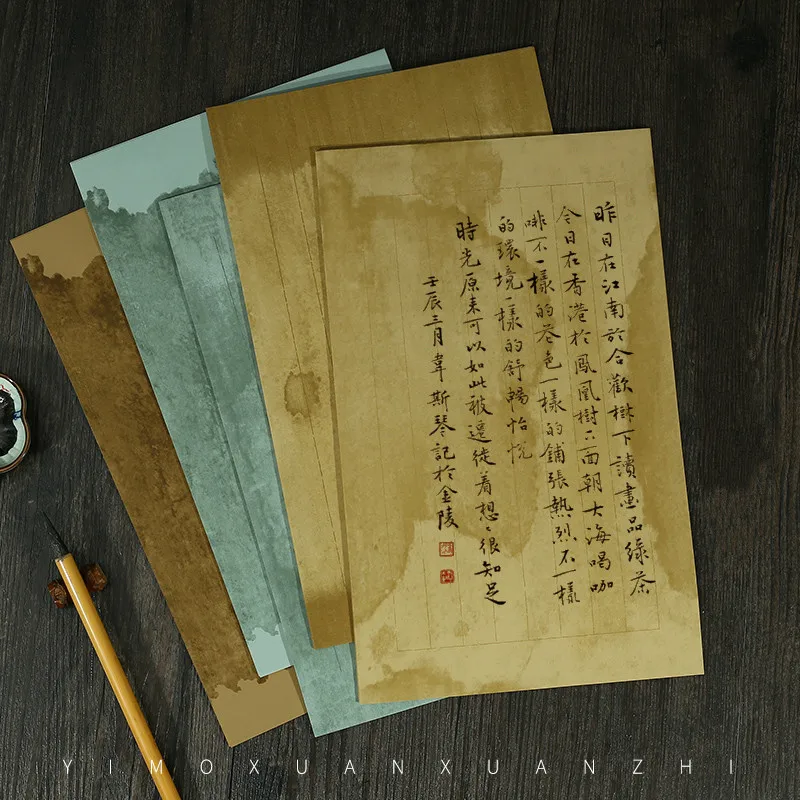 昨日在江南於合歡樹下讀畫品綠茶
今日在香港於鳳凰樹下面朝大海喝咖
啡不一樣的花色一樣的鋪張熱烈不一樣
的環境一樣的舒暢怡悅
時光原來可以如此被遷徙着想想很知足
壬辰三月韋斯琴記於金陵
YIMOXUANXUANZHI